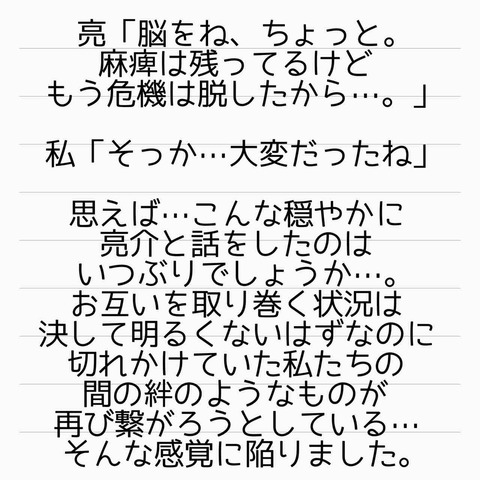 亮「脳をね、ちょっと。
麻痺は残ってるけど
もう危機は脱したから…。」
私「そっか…大変だったね」
思えば…こんな穏やかに
亮介と話をしたのは
いつぶりでしょうか…。
お互いを取り巻く状況は
決して明るくないはずなのに
切れかけていた私たちの
間の絆のようなものが
再び繋がろうとしている…
そんな感覚に陥りました。